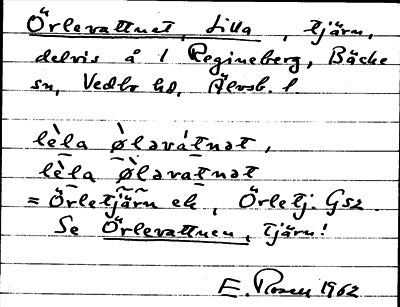 Örlevattnet, Lilla, tjärn,
delvis å 1 Regineberg, Bäcke
sn, Vedbo hd, Älvsb. l.
lèla ø̀ləvátnət,
lèla ø̀ləvatnət
= Örletjärn ek, Örletj. GS2.
Se Örlevattnen, tjärn!
E. Rosen 1962